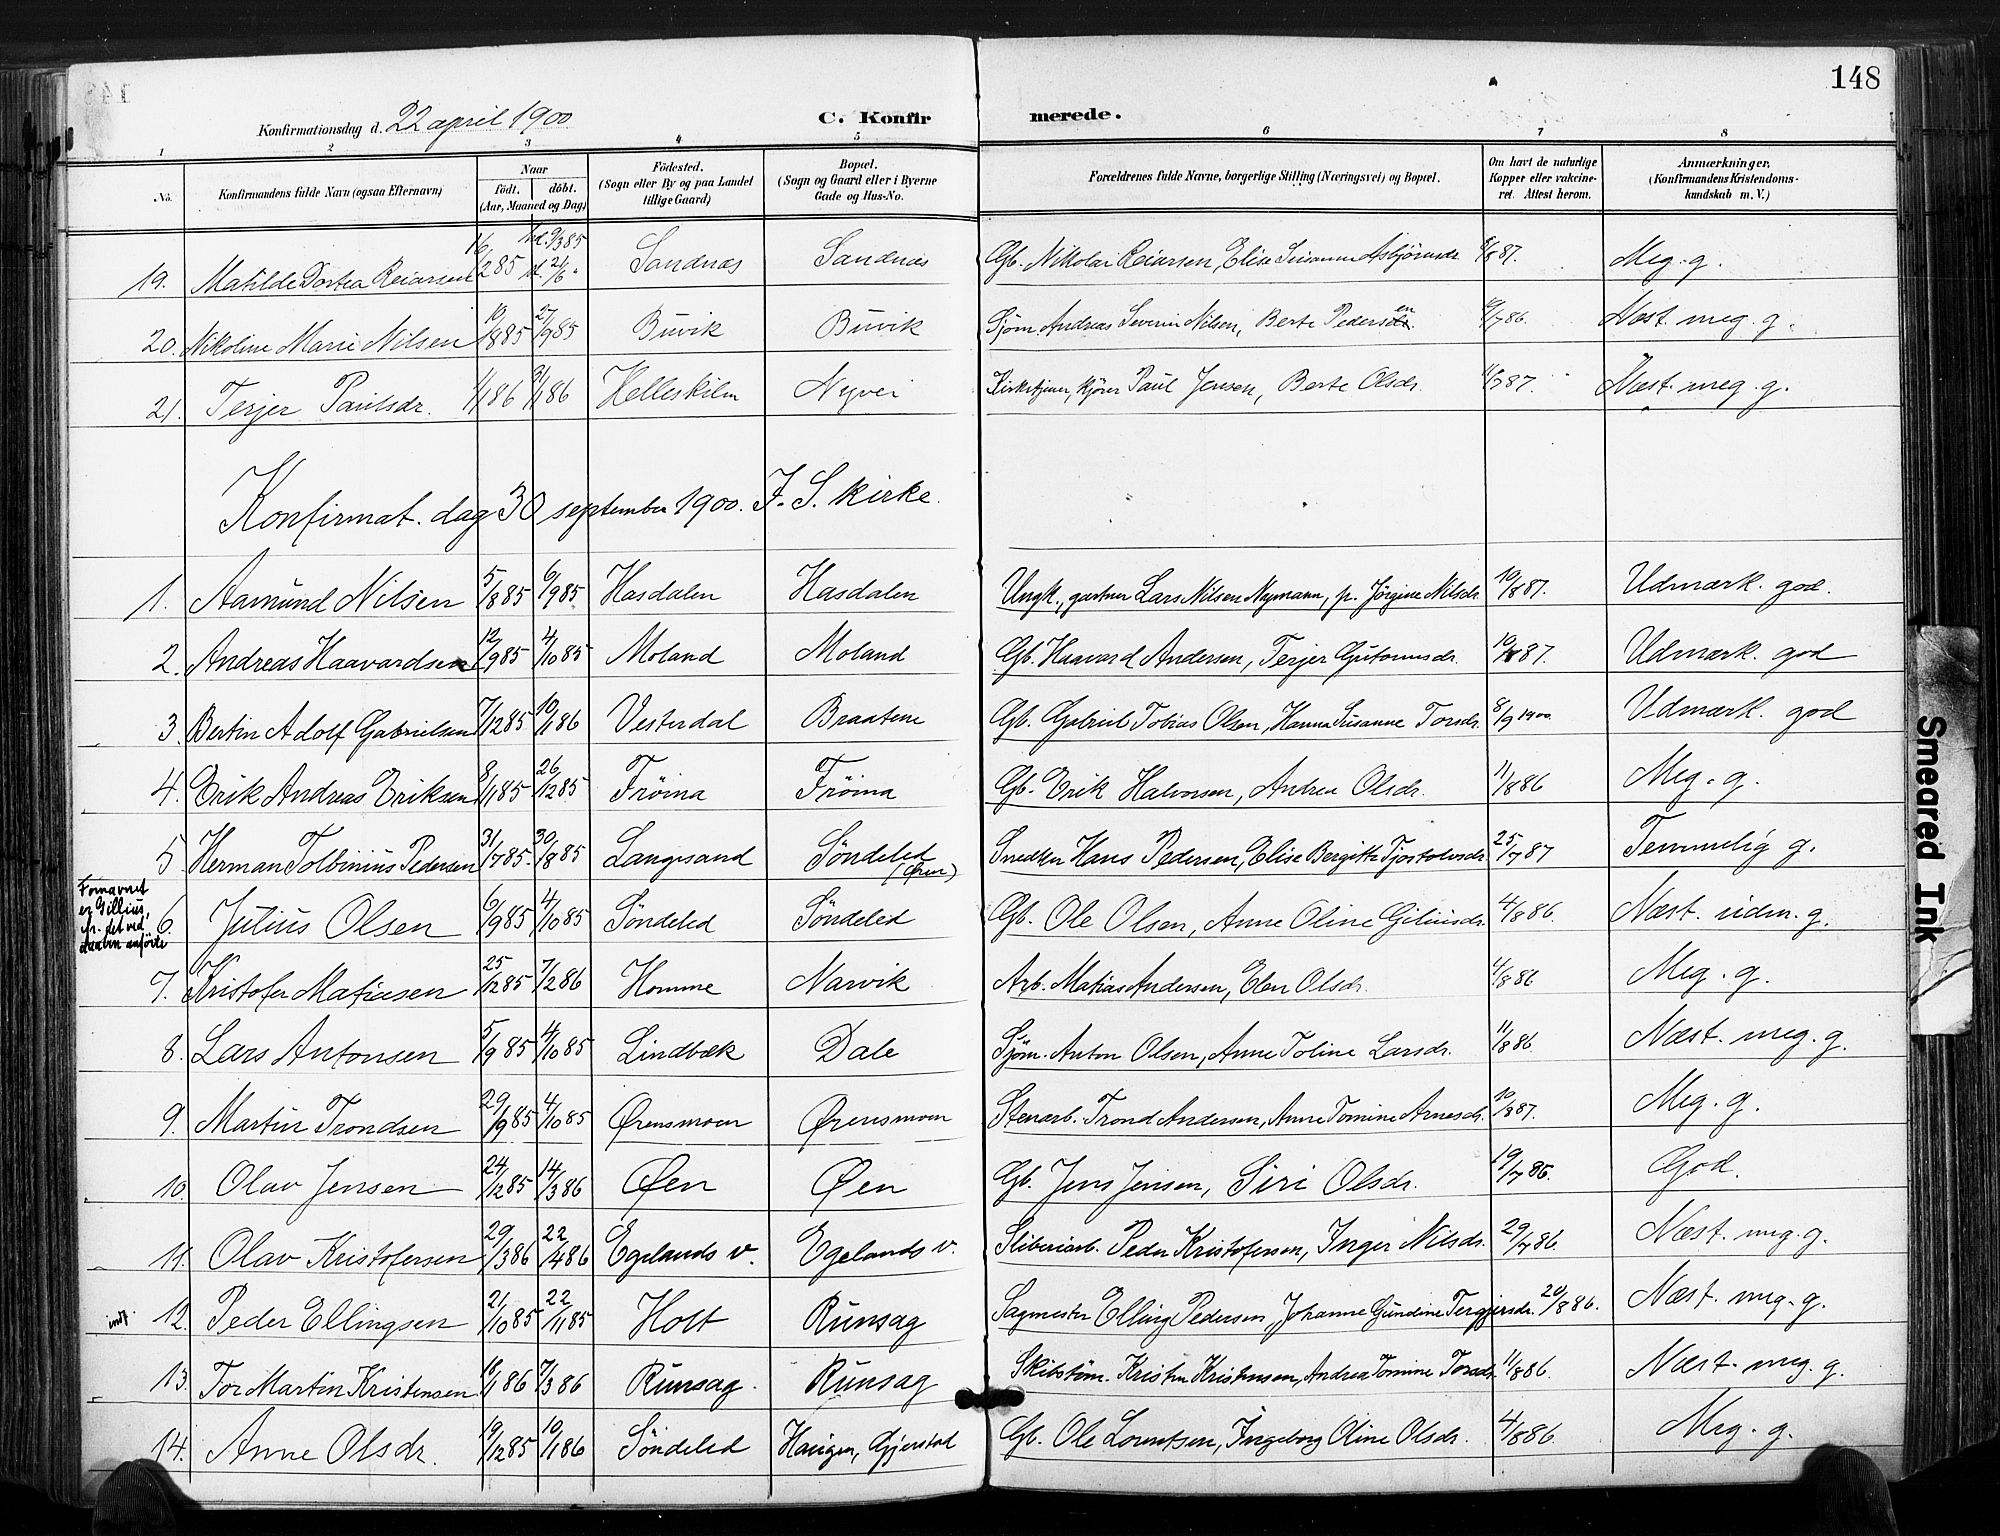 148
Konfirmationsdag d. 22 april 1900. C. Konfirmerede.
1 2 3 4 5 6 7 8
No. Konfirmandens fulde Navn (ogsaa Efternavn) Naar født. døbt. (Aar, Maaned og Dag) Fødested. (Sogn eller By og paa Landet tillige Gaard) Bopæl. (Sogn og Gaard eller i Byerne Gade og Hus-No. Forældrenes fulde Navne, borgerlige Stilling (Næringsvei) og Bopæl. Om havt de naturlige Kopper eller vakcineret. Attest herom. Anmærkninger. (Konfirmandens Kristendomskundskab m. V.)
19. Matilde Dortea Reiarsen 16/2 85 hd. 9/3 85 Sandnæs Sandnæs Gb. Nikolai Reiarsen, Elise Susanne Asbjørnsdr. 87. Meg. g.
20. Nikoline Marie Nilsen 10/8 85 27/9 85 Buvik Buvik Sjøm. Andreas Severin Nilsen, Berte Pedersen /7 86. Næst. meg. g.
21. Terjer Paulsdr. 4/1 86 31/1 86 Helleskilen Nyvei Kirketjener, kjører Paul Jensen, Berte Olsdr. 87. Næst. meg. g.
Konfirmat. dag 30 september 1900. F. S. kirke.
1. Aamund Nilsen 5/8 85 6/9 85. Hasdalen Hasdalen Ungk., gartner Lars Nilsen Nymann, p. Jørgine Nilsdr. 10/8 87. Udmærk. god.
2. Andreas Haavardsen 12/9 85 4/10 85 Moland Moland Gb. Haavard Andersen, Terjer Gutormsdr. 87. Udmærk. god
3. Bertin Adolf Gabrielsen 7/12 85 10/1 86 Vesterdal Braatene Gb. Gabriel Tobias Olsen, Hanna Susanne Torsdr. 8/9 1900. Udmærk. god
4. Erik Andreas Eriksen 8/11 85 26/12 85 Frøina Frøina Gb. Erik Halvorsen, Andrea Olsdr. 11/8 86 Meg. g.
5 Herman Tolbinius Pedersen 31/7 85. 30/8 85 Langsand Søndeled (Øren) Snedker Hans Pedersen, Elise Bergitte Tjostolvsdr. 25/7 87 Temmelig g.
Fornavnet er Gillius, det ved daaben anførte
6. Julius Olsen 6/9 85 4/10 85 Søndeled Søndeled Gb. Ole Olsen, Anne Oline Giliusdr. 4/8 86. Næst. udm. g.
7. Kristofer Matiasen 25/12 85 7/2 86 Homme Narvik Arb. Matias Andersen, Elen Olsdr. 4/8 86 Meg. g.
8. Lars Antonsen 5/9 85 4/10 85 Lindbæk Dale Sjøm. Anton Olsen, Anne Toline Larsdr. 11/8 86. Næst. meg. g.
9. Martin Trondsen 29/9 85 4/10 85 Ørensmoen Ørensmoen Stenarb. Trond Andersen, Anne Tomine Arnesdr. 87. Meg. g.
10. Olav Jensen 24/12 85 14/3 86 Øen Øen Gb. Jens Jensen, Siri Olsdr. 19/7 86. God.
11. Olav Kristofersen 29/3 86 22/4 86 Egelands v. Egelands v. Sliberiarb. Peder Kristofersen, Inger Nilsdr. 29/7 86. Næst. meg. g.
indf. 12. Peder Ellingsen 21/10 85 22/11 85 Holt Runsag Sagmester Elling Pedersen, Johanne Gundine Tergjersdr. 20/8 86. Næst. meg. g.
13. Tor Martin Kristensen 18/1 86 7/3 86 Runsag. Runsag Skibstøm. Kristen Kristensen, Andrea Tomine Torsdr. 11/8 86. Næst. meg. g.
14. Anne Olsdr. 19/12 85 10/1 86 Søndeled Haugen, Gjerstad Gb. Ole Lorentsen, Ingeborg Oline Olsdr. 4/8 86. Meg. g.
Smeared Ink